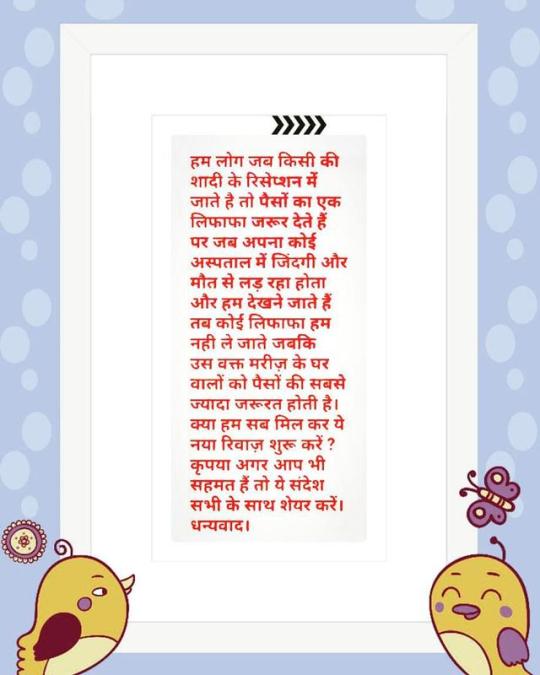 हम लोग जब किसी की
शादी के रिसेप्शन में
जाते है तो पैसों का एक
लिफाफा जरूर देते हैं
पर जब अपना कोई
अस्पताल में जिंदगी और
मौत से लड़ रहा होता
और हम देखने जाते हैं
तब कोई लिफाफा हम
नही ले जाते जबकि
उस वक्त मरीज़ के घर
वालों को पैसों की सबसे
ज्यादा जरूरत होती है।
क्या हम सब मिल कर ये
नया रिवाज़ शुरू करें ?
कृपया अगर आप भी
सहमत हैं तो ये संदेश
सभी के साथ शेयर करें।
धन्यवाद।